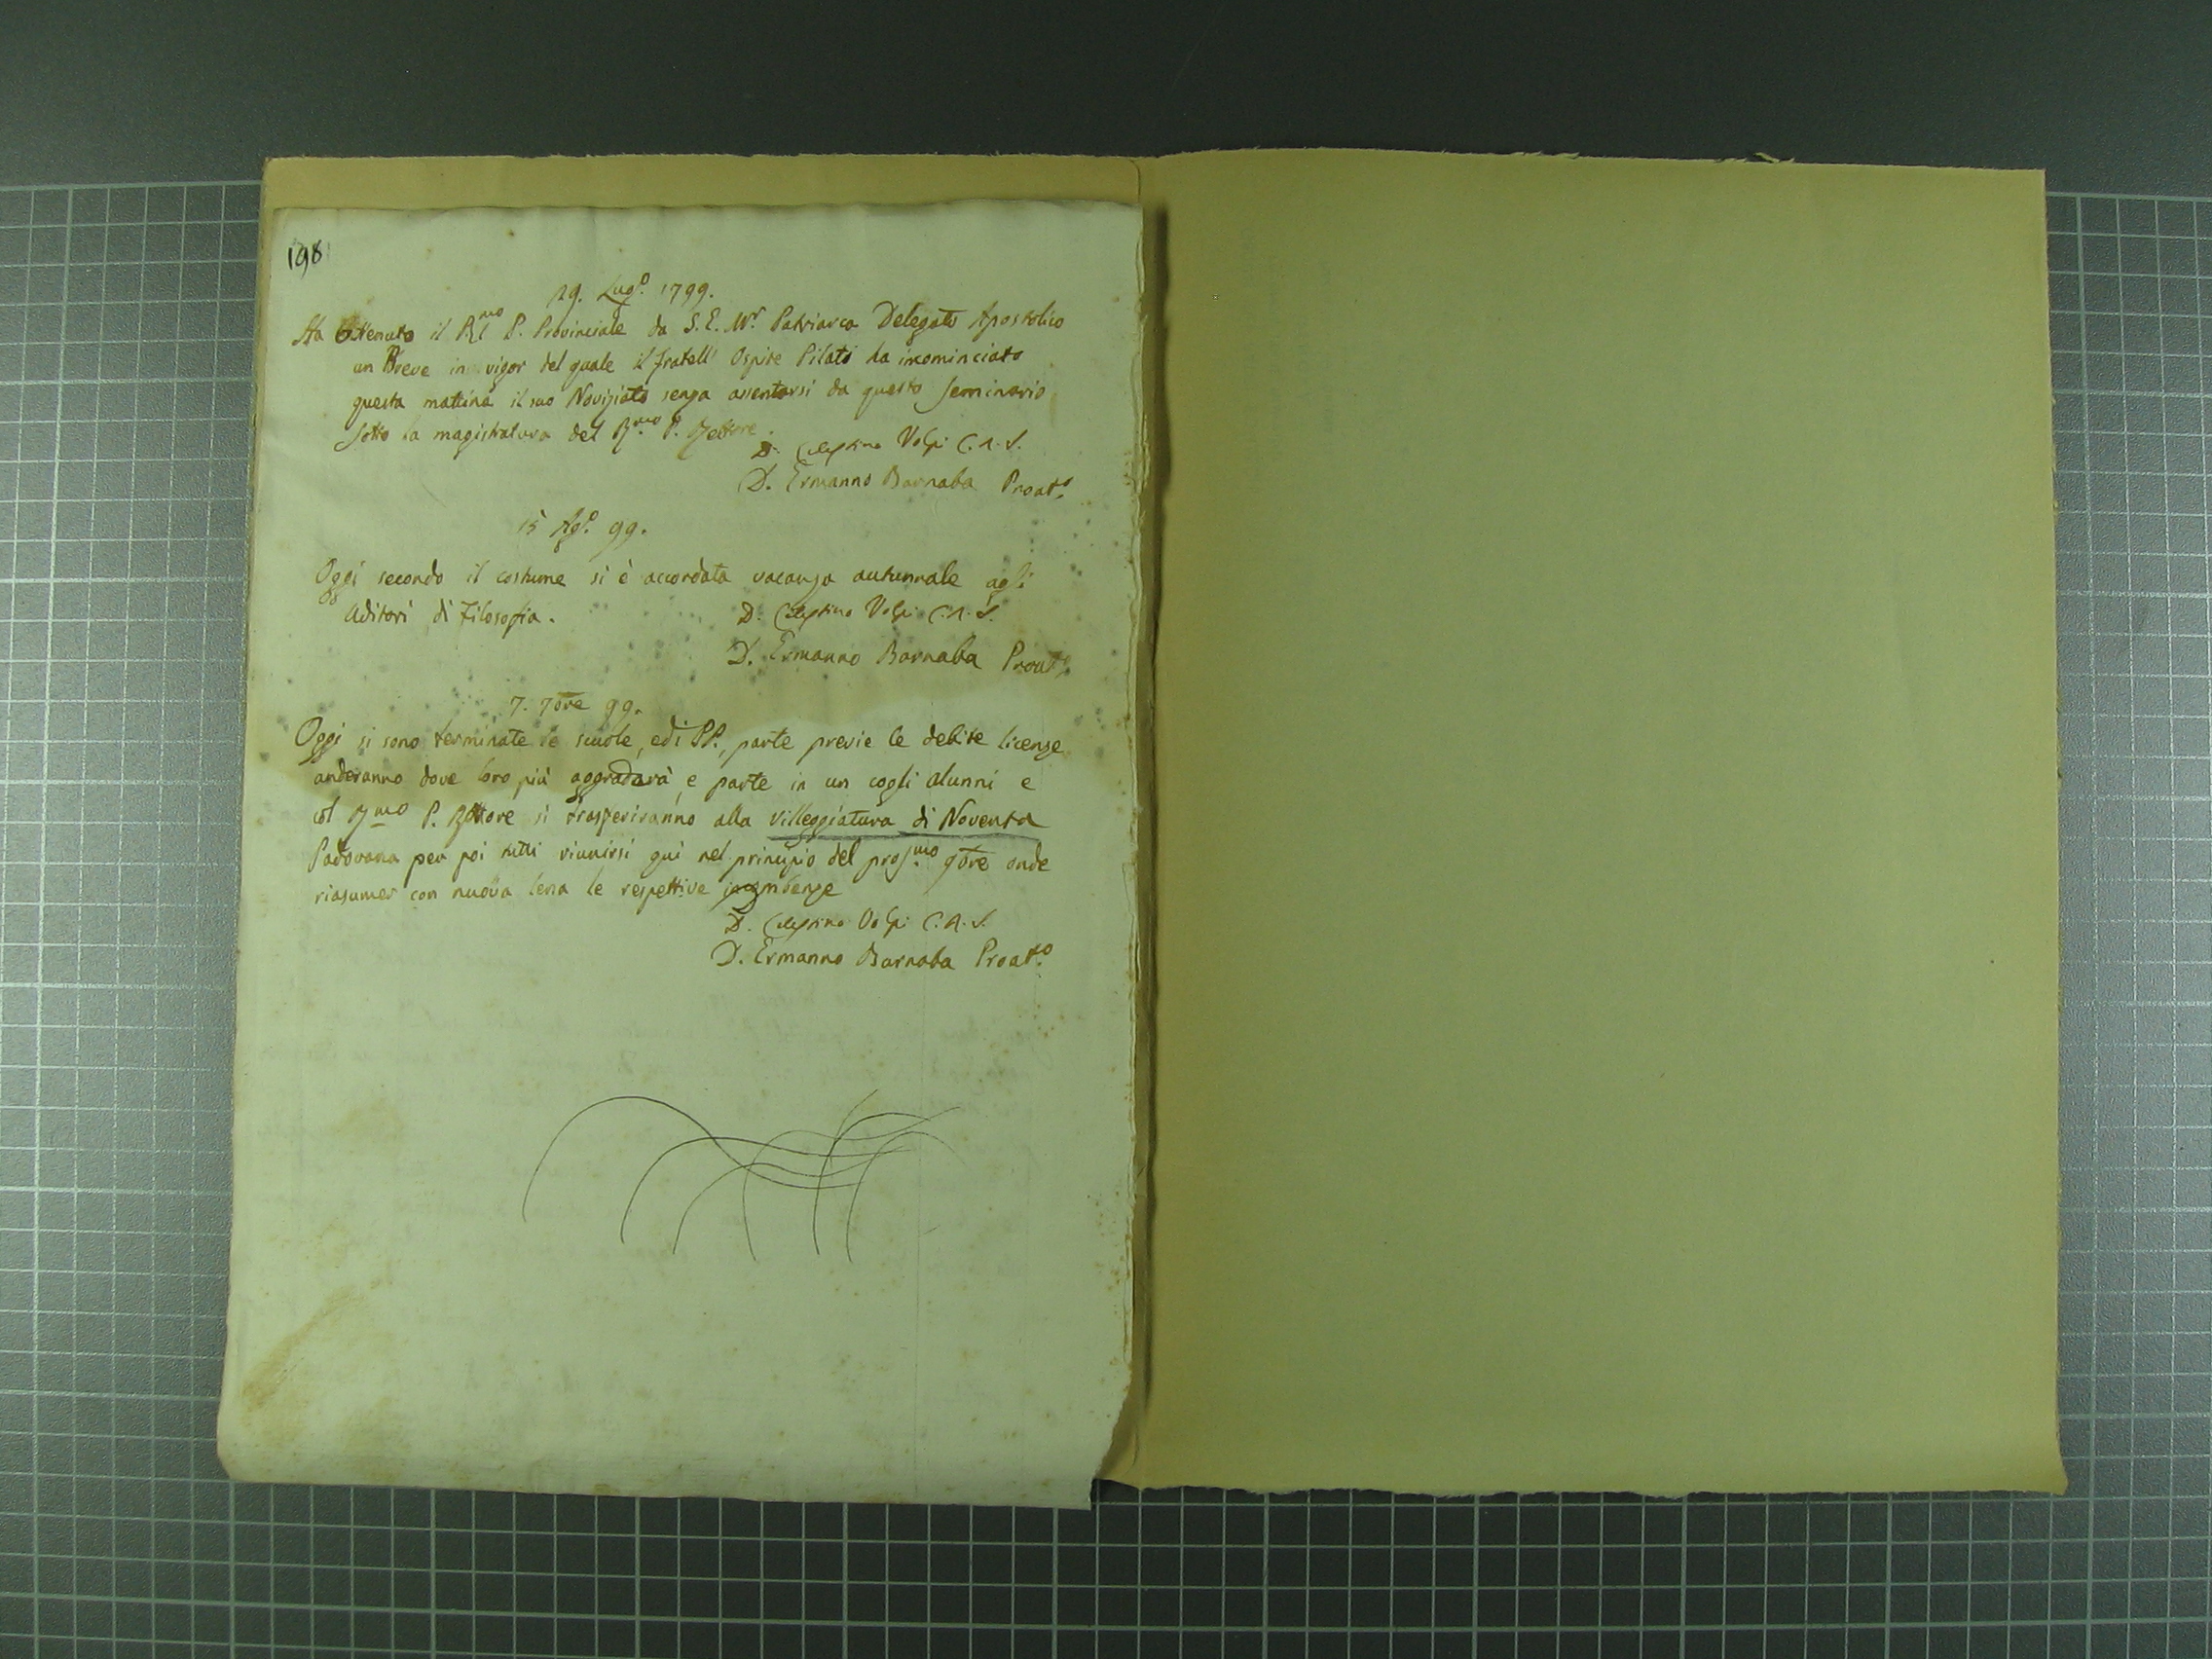 198
29. Lug.o 1799.
Ha Ottenuto il R.mo P. Provinciale da S. E. M.r Patriarca Delegato Apostolico
un Breve in vigor del quale il fratell' Ospite Pilati ha incominciato
questa mattina il suo Noviziato senza assentarsi da questo Seminario
sotto la magistratura del R.mo P. Rettore.
D. Celestino Volpi C.R.S.
D. Ermanno Barnaba Proat.o
15 Ag.o 99.
Oggi secondo il costume si è accordata vacanza autunnale agli
Uditori di Filosofia.
D. Celestino Volpi C.R.S.
D. Ermanno Barnaba Proat.o
7. 7bre 99.
Oggi si sono terminate le scuole, ed i PP., parte previe le debite licenze
anderanno dove loro più aggradarà, e parte in un cogli alunni e
col R.mo P. Rettore si trasferiranno alla villeggiatura di Noventa
Padovana per poi tutti riunirsi qui nel principio del pros.mo 9bre onde
riasumer con nuova lena le respettive incombenze
D. Celestino Volpi C.R.S.
D. Ermanno Barnaba Proat.o